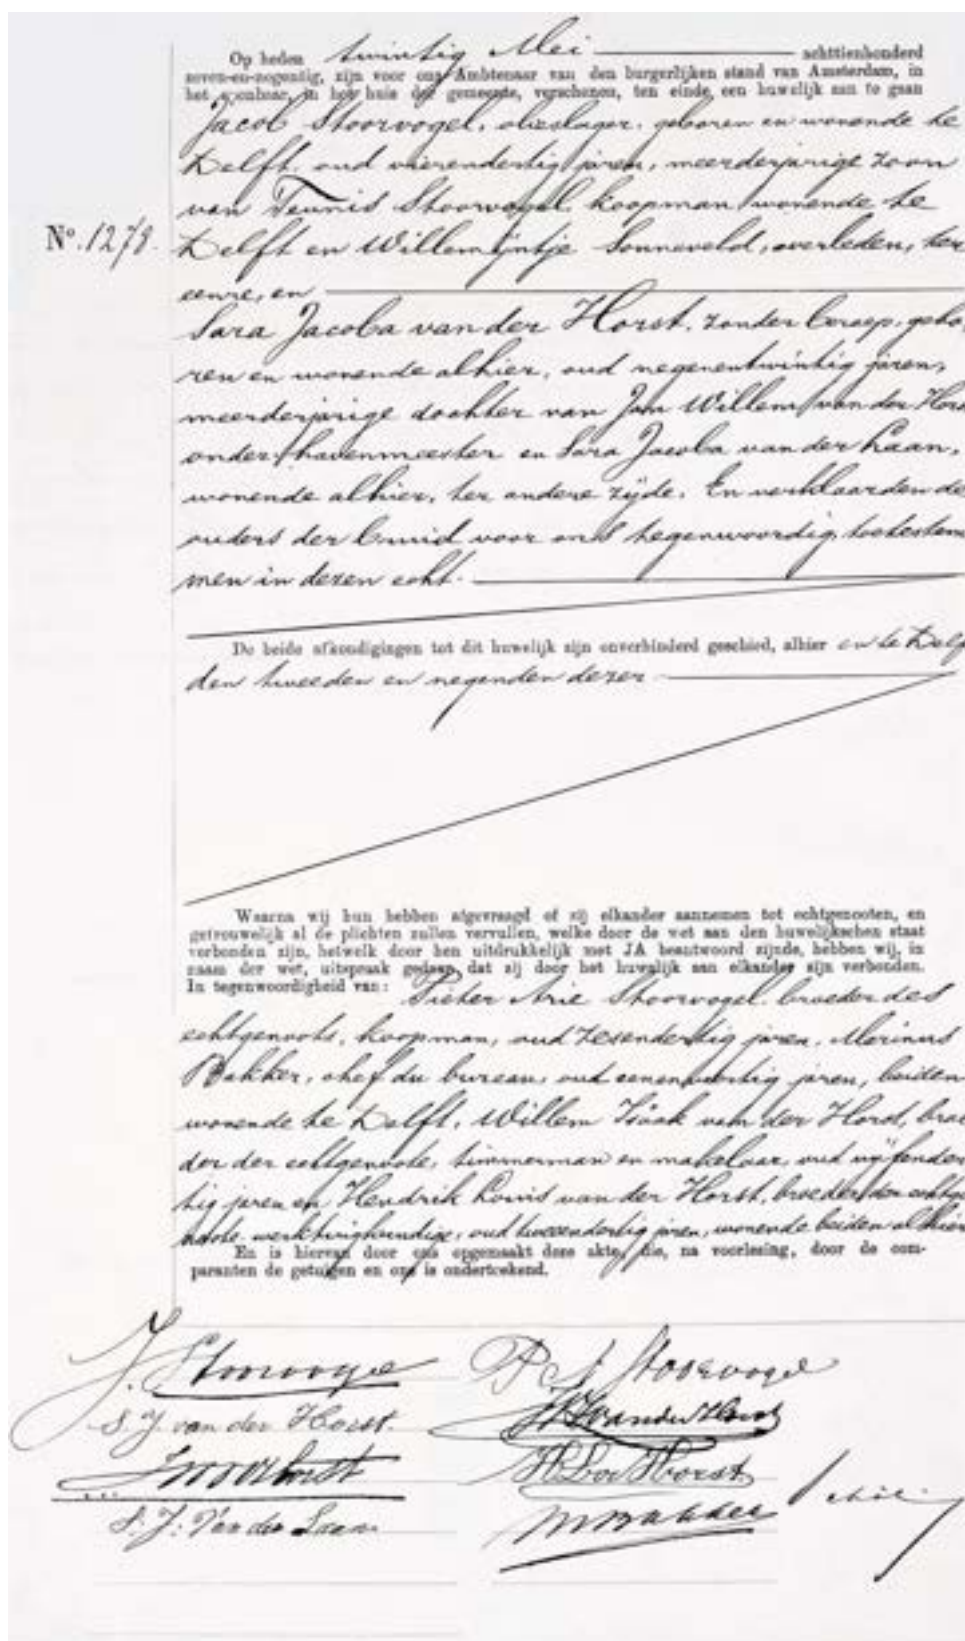 Op heden twintig Mei achttienhonderd
zeven-en-negentig, zijn voor ons Ambtenaar van den burgerlijken stand van Amsterdam, in
het openbaar, in het huis der gemeente, verschenen, ten einde een huwelijk aan te gaan
Jacob Stoorvogel, olieslager, geboren en wonende te
Delft, oud vierendertig jaren, meerderjarige zoon
van Teunis Stoorvogel, koopman, wonende te
No. 1278.
Delft en Willemijntje Sonneveld, overleden, ter
eenre, en
Sara Jacoba van der Horst, zonder beroep, gebo-
ren en wonende alhier, oud negenentwintig jaren,
meerderjarige dochter van Jan Willem van der Hors
onder havenmeester en Sara Jacoba van der Laan,
wonende alhier, ter andere zijde. En verklaarden de
ouders der bruid voor ons tegenwoordig, toetestem
men in dezen echt.
De beide afkondigingen tot dit huwelijk zijn onverhinderd geschied, alhier en te Delf
den tweeden en negenden dezer
Waarna wij hun hebben afgevraagd of zij elkander aannemen tot echtgenooten, en
getrouwelijk al de plichten zullen vervullen, welke door de wet aan den huwelijkschen staat
verbonden zijn, hetwelk door hen uitdrukkelijk met JA beantwoord zijnde, hebben wij, in
naam der wet, uitspraak gedaan, dat zij door het huwelijk aan elkander zijn verbonden.
In tegenwoordigheid van: Pieter Arie Stoorvogel, broeder des
echtgenoots, koopman, oud zesendertig jaren, Marinus
Bakker, chef du bureau, oud eenenveertig jaren, beiden
wonende te Delft, Willem Izaak van der Horst, broe
der der echtgenoote, timmerman en makelaar, oud vijfender
tig jaren en Hendrik Louis van der Horst, broeder der echtge
noote, werktuigkundige, oud tweeendertig jaren, wonende beiden alhier
En is hiervan door ons opgemaakt deze akte, die, na voorlezing, door de com-
paranten de getuigen en ons is onderteekend.
J. Stoorvogel P. A. Stoorvogel
S. J. van der Horst. W I van der Horst
JW vd Horst H L vd Horst
S. J. Van der Laan M Bakker